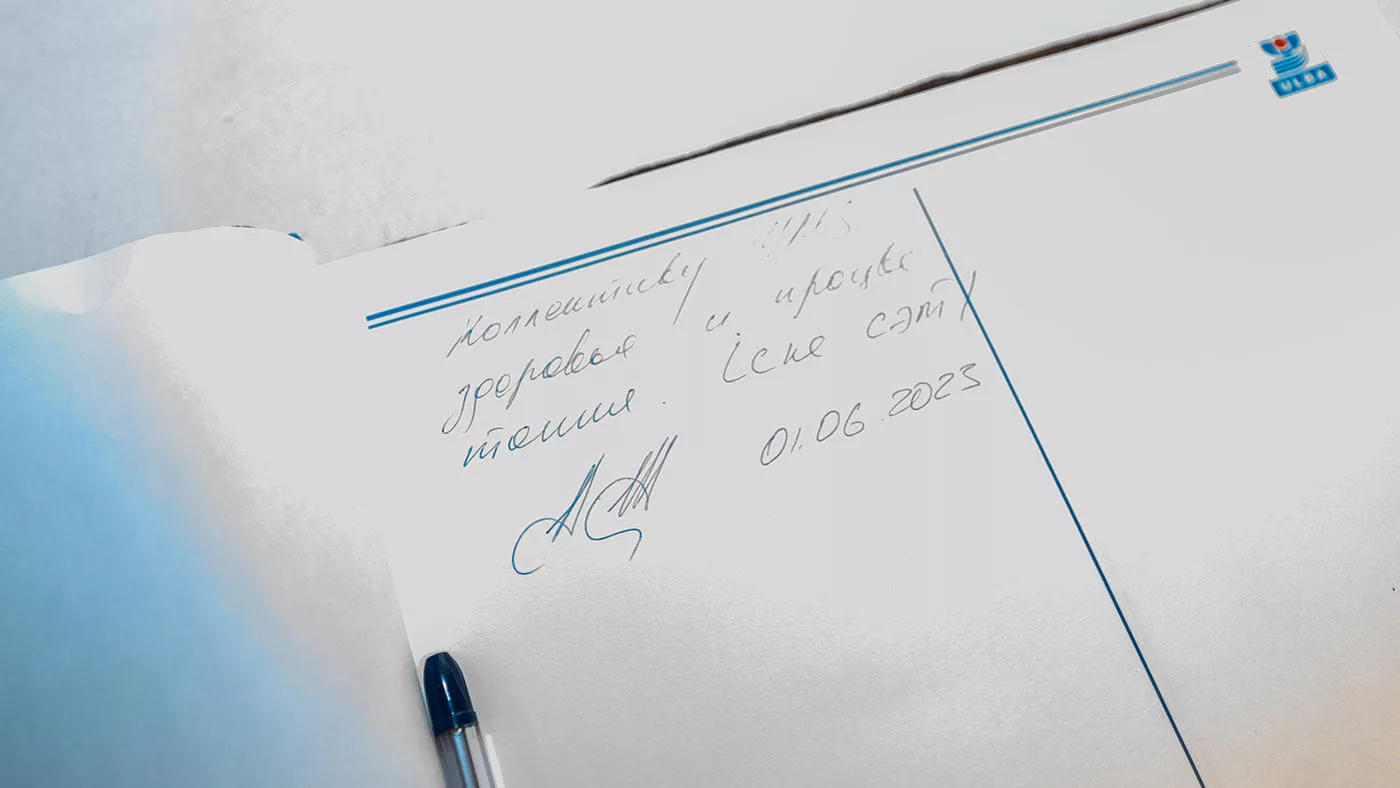 ULBA
Коллективу УМЗ
здоровья и процве
тания. Іске сәт!
01.06.2023